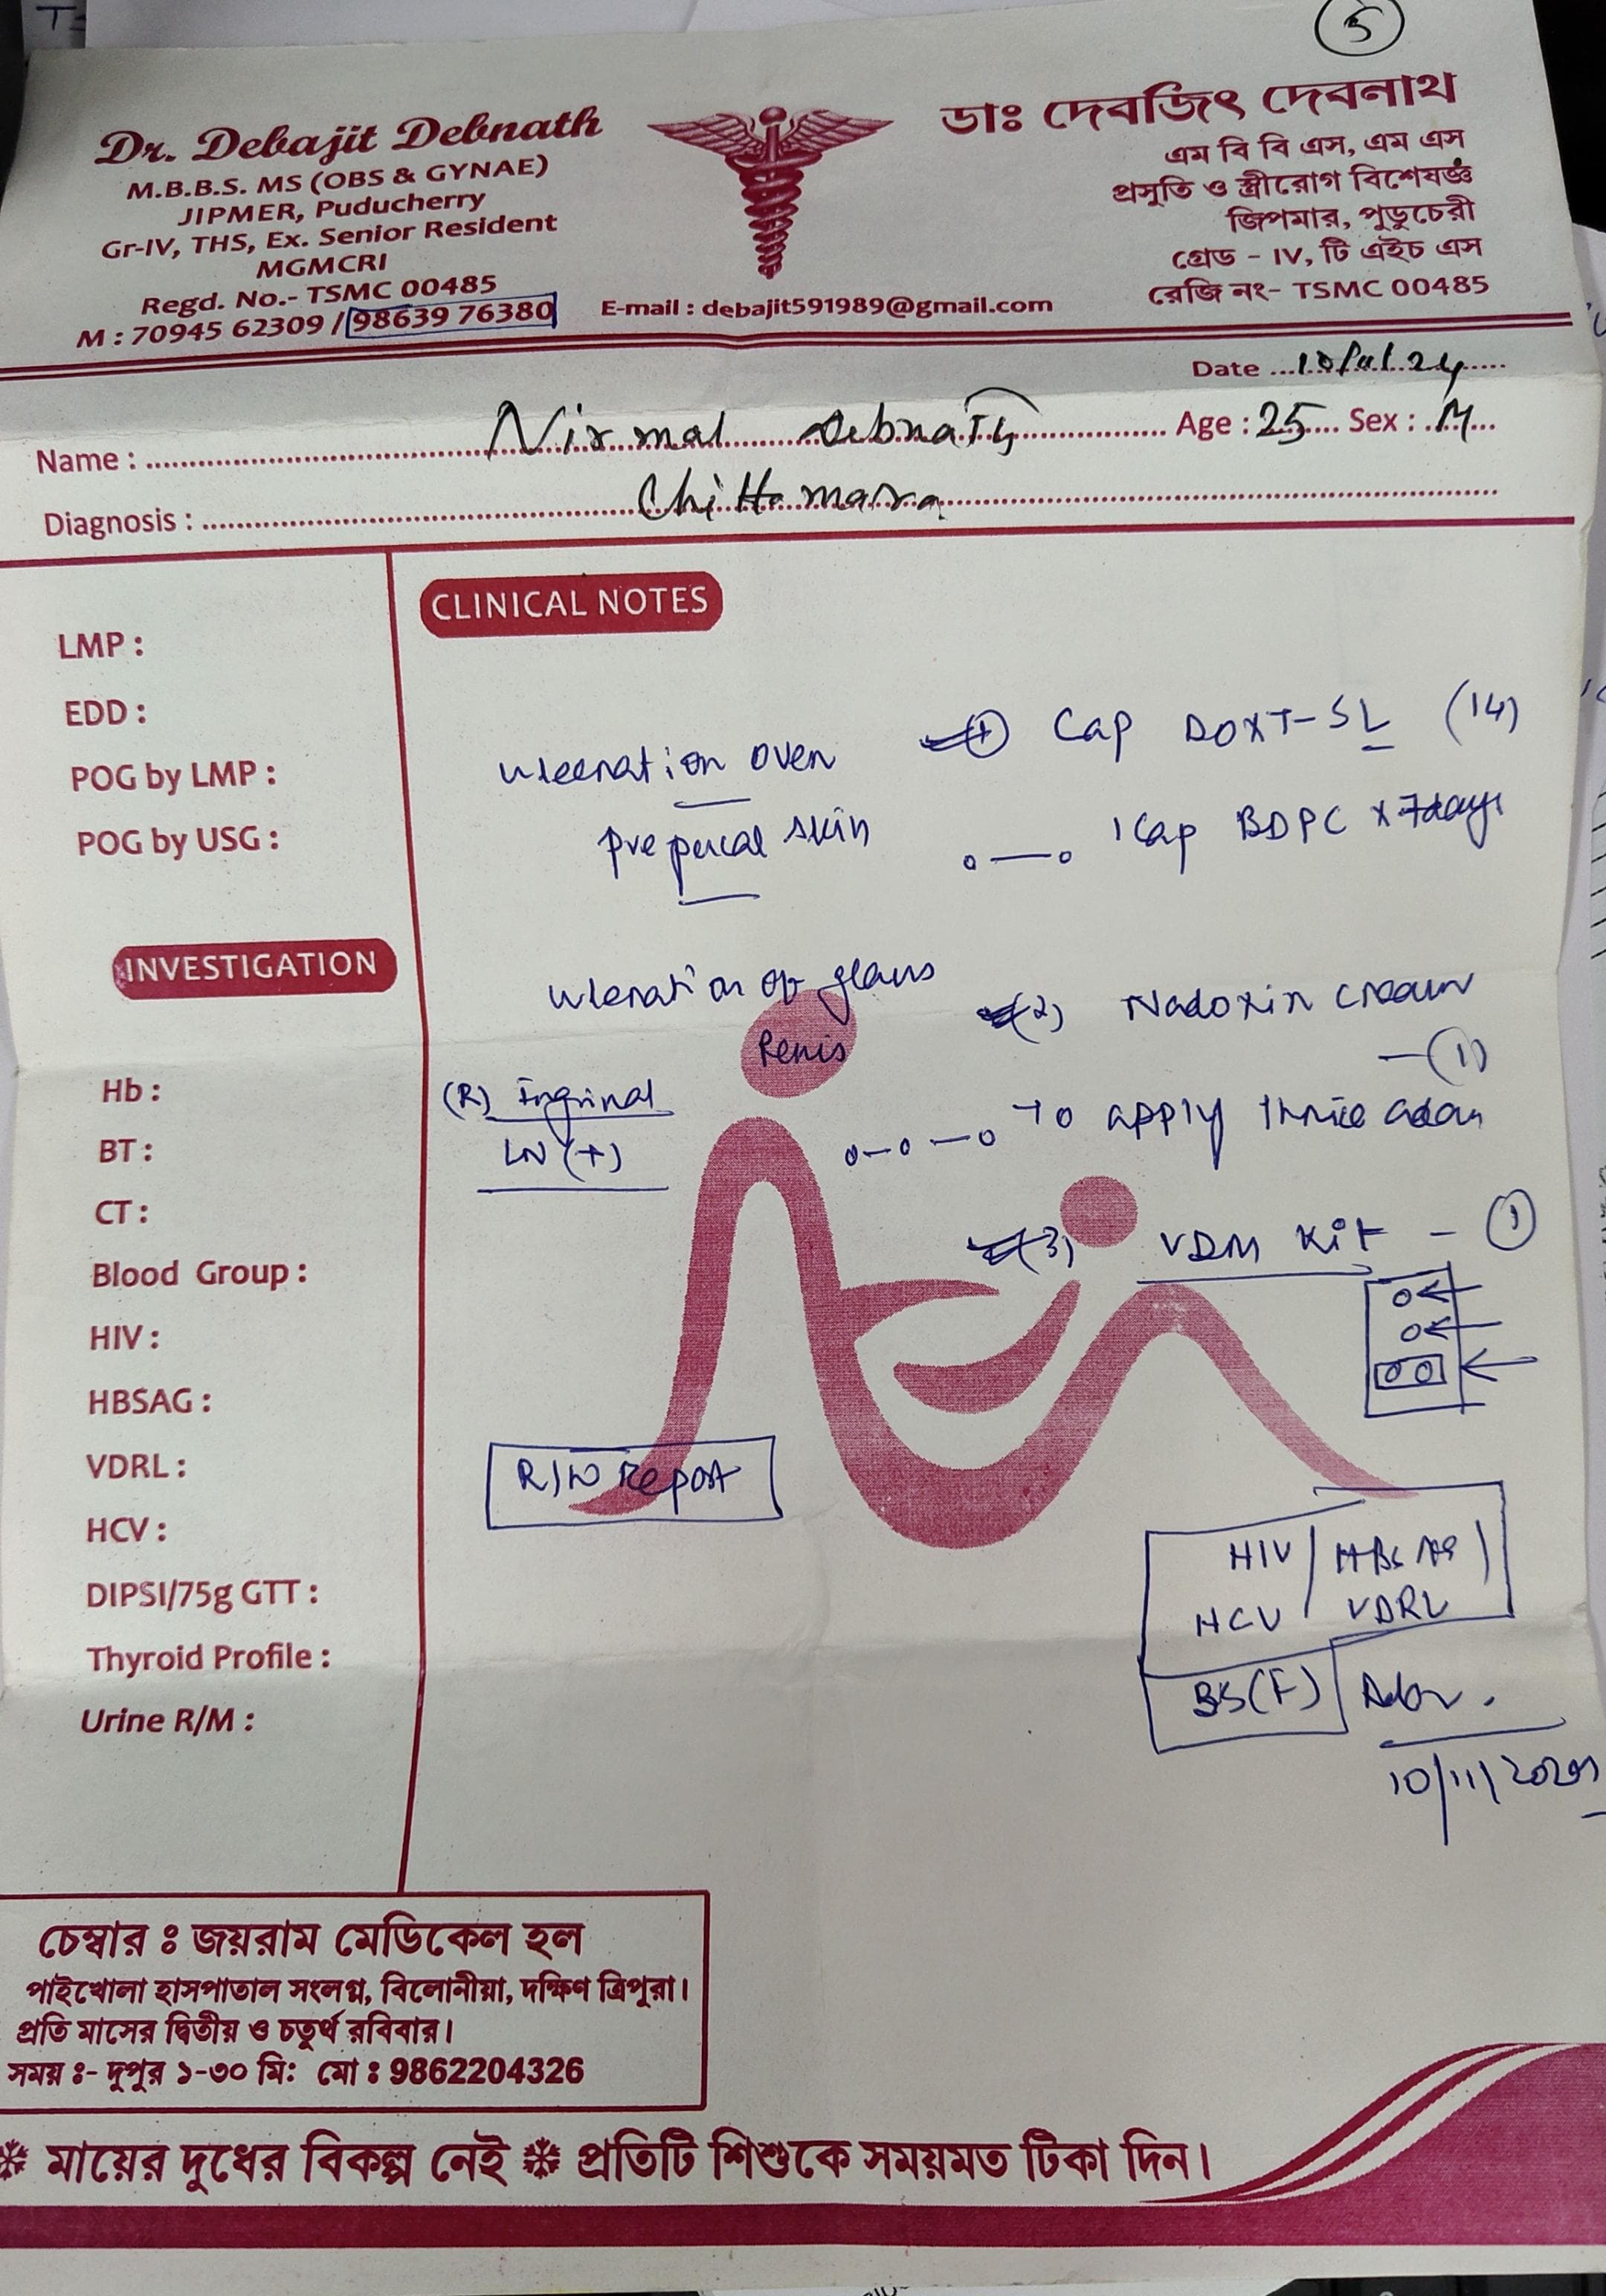 5
Dr. Debajit Debnath
M.B.B.S. MS (OBS & GYNAE)
JIPMER, Puducherry
Gr-IV, THS, Ex. Senior Resident
MGMCRI
Regd. No.- TSMC 00485
M : 70945 62309 / 98639 76380
E-mail : debajit591989@gmail.com
ডাঃ দেবজিৎ দেবনাথ
এম বি বি এস, এম এস
প্রসুতি ও স্ত্রীরোগ বিশেষজ্ঞ
জিপমার, পুডুচেরী
গ্রেড - IV, টি এইচ এস
রেজি নং- TSMC 00485
Date
Name : Nirmal Debnath Age : 25 Sex : M
Diagnosis : Chittamara
LMP :
EDD :
POG by LMP :
POG by USG :
INVESTIGATION
Hb :
BT :
CT :
Blood Group :
HIV :
HBSAG :
VDRL :
HCV :
DIPSI/75g GTT :
Thyroid Profile :
Urine R/M :
CLINICAL NOTES
ulceration over
prepucal skin
ulceration of glans
Penis
(R) Inguinal
LN (+)
R/W Report
(1) Cap DOXT-SL (14)
o—o 1 cap BDPC x 7days
(2) Nadoxin cream
—(1)
o—o—o To apply thrice
(3) VDM Kit - (1)
HIV / HBsAg /
HCV / VDRL
BS(F)
10/11/2024
চেম্বার ঃ জয়রাম মেডিকেল হল
পাইখোলা হাসপাতাল সংলগ্ন, বিলোনীয়া, দক্ষিণ ত্রিপুরা।
প্রতি মাসের দ্বিতীয় ও চতুর্থ রবিবার।
সময় ঃ- দুপুর ১-৩০ মি: মো ঃ 9862204326
মায়ের দুধের বিকল্প নেই ❄ প্রতিটি শিশুকে সময়মত টিকা দিন।